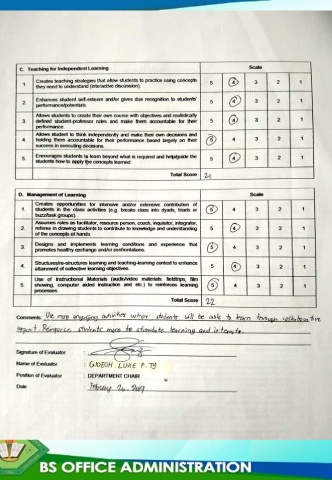 C. Teaching for Independent Learning Scale
1. Creates teaching strategies that allow students to practice using concepts 5 4 3 2 1
they need to understand (interactive discussion).
2. Enhances student self-esteem and/or gives due recognition to students' 5 4 3 2 1
performance/potentials.
3. Allows students to create their own course with objectives and realistically 5 4 3 2 1
defined student-professor rules and make them accountable for their
performance.
4. Allows student to think independently and make their own decisions and 5 4 3 2 1
holding them accountable for their performance based largely on their
success in executing decisions.
5. Encourages students to learn beyond what is required and help/guide the 5 4 3 2 1
students how to apply the concepts learned
Total Score 21
D. Management of Learning Scale
1. Creates opportunities for intensive and/or extensive contribution of 5 4 3 2 1
students in the class activities (e.g. breaks class into dyads, triads or
buzz/task groups).
2. Assumes roles as facilitator, resource person, coach, inquisitor, integrator, 5 4 3 2 1
referee in drawing students to contribute to knowledge and understanding
of the concepts at hands.
3. Designs and implements learning conditions and experience that 5 4 3 2 1
promotes healthy exchange and/or confrontations.
4. Structures/re-structures learning and teaching-learning context to enhance 5 4 3 2 1
attainment of collective learning objectives.
5. Use of Instructional Materials (audio/video materials: fieldtrips, film 5 4 3 2 1
showing, computer aided instruction and etc.) to reinforces learning
processes.
Total Score 22
Comments: Use more engaging activities where students will be able to learn through collaborative
report. Reinforce students more to stimulate learning and
Signature of Evaluator :
Name of Evaluator : GIDEON LUKE P. TY
Position of Evaluator : DEPARTMENT CHAIR
Date : February 26,
BS OFFICE ADMINISTRATION